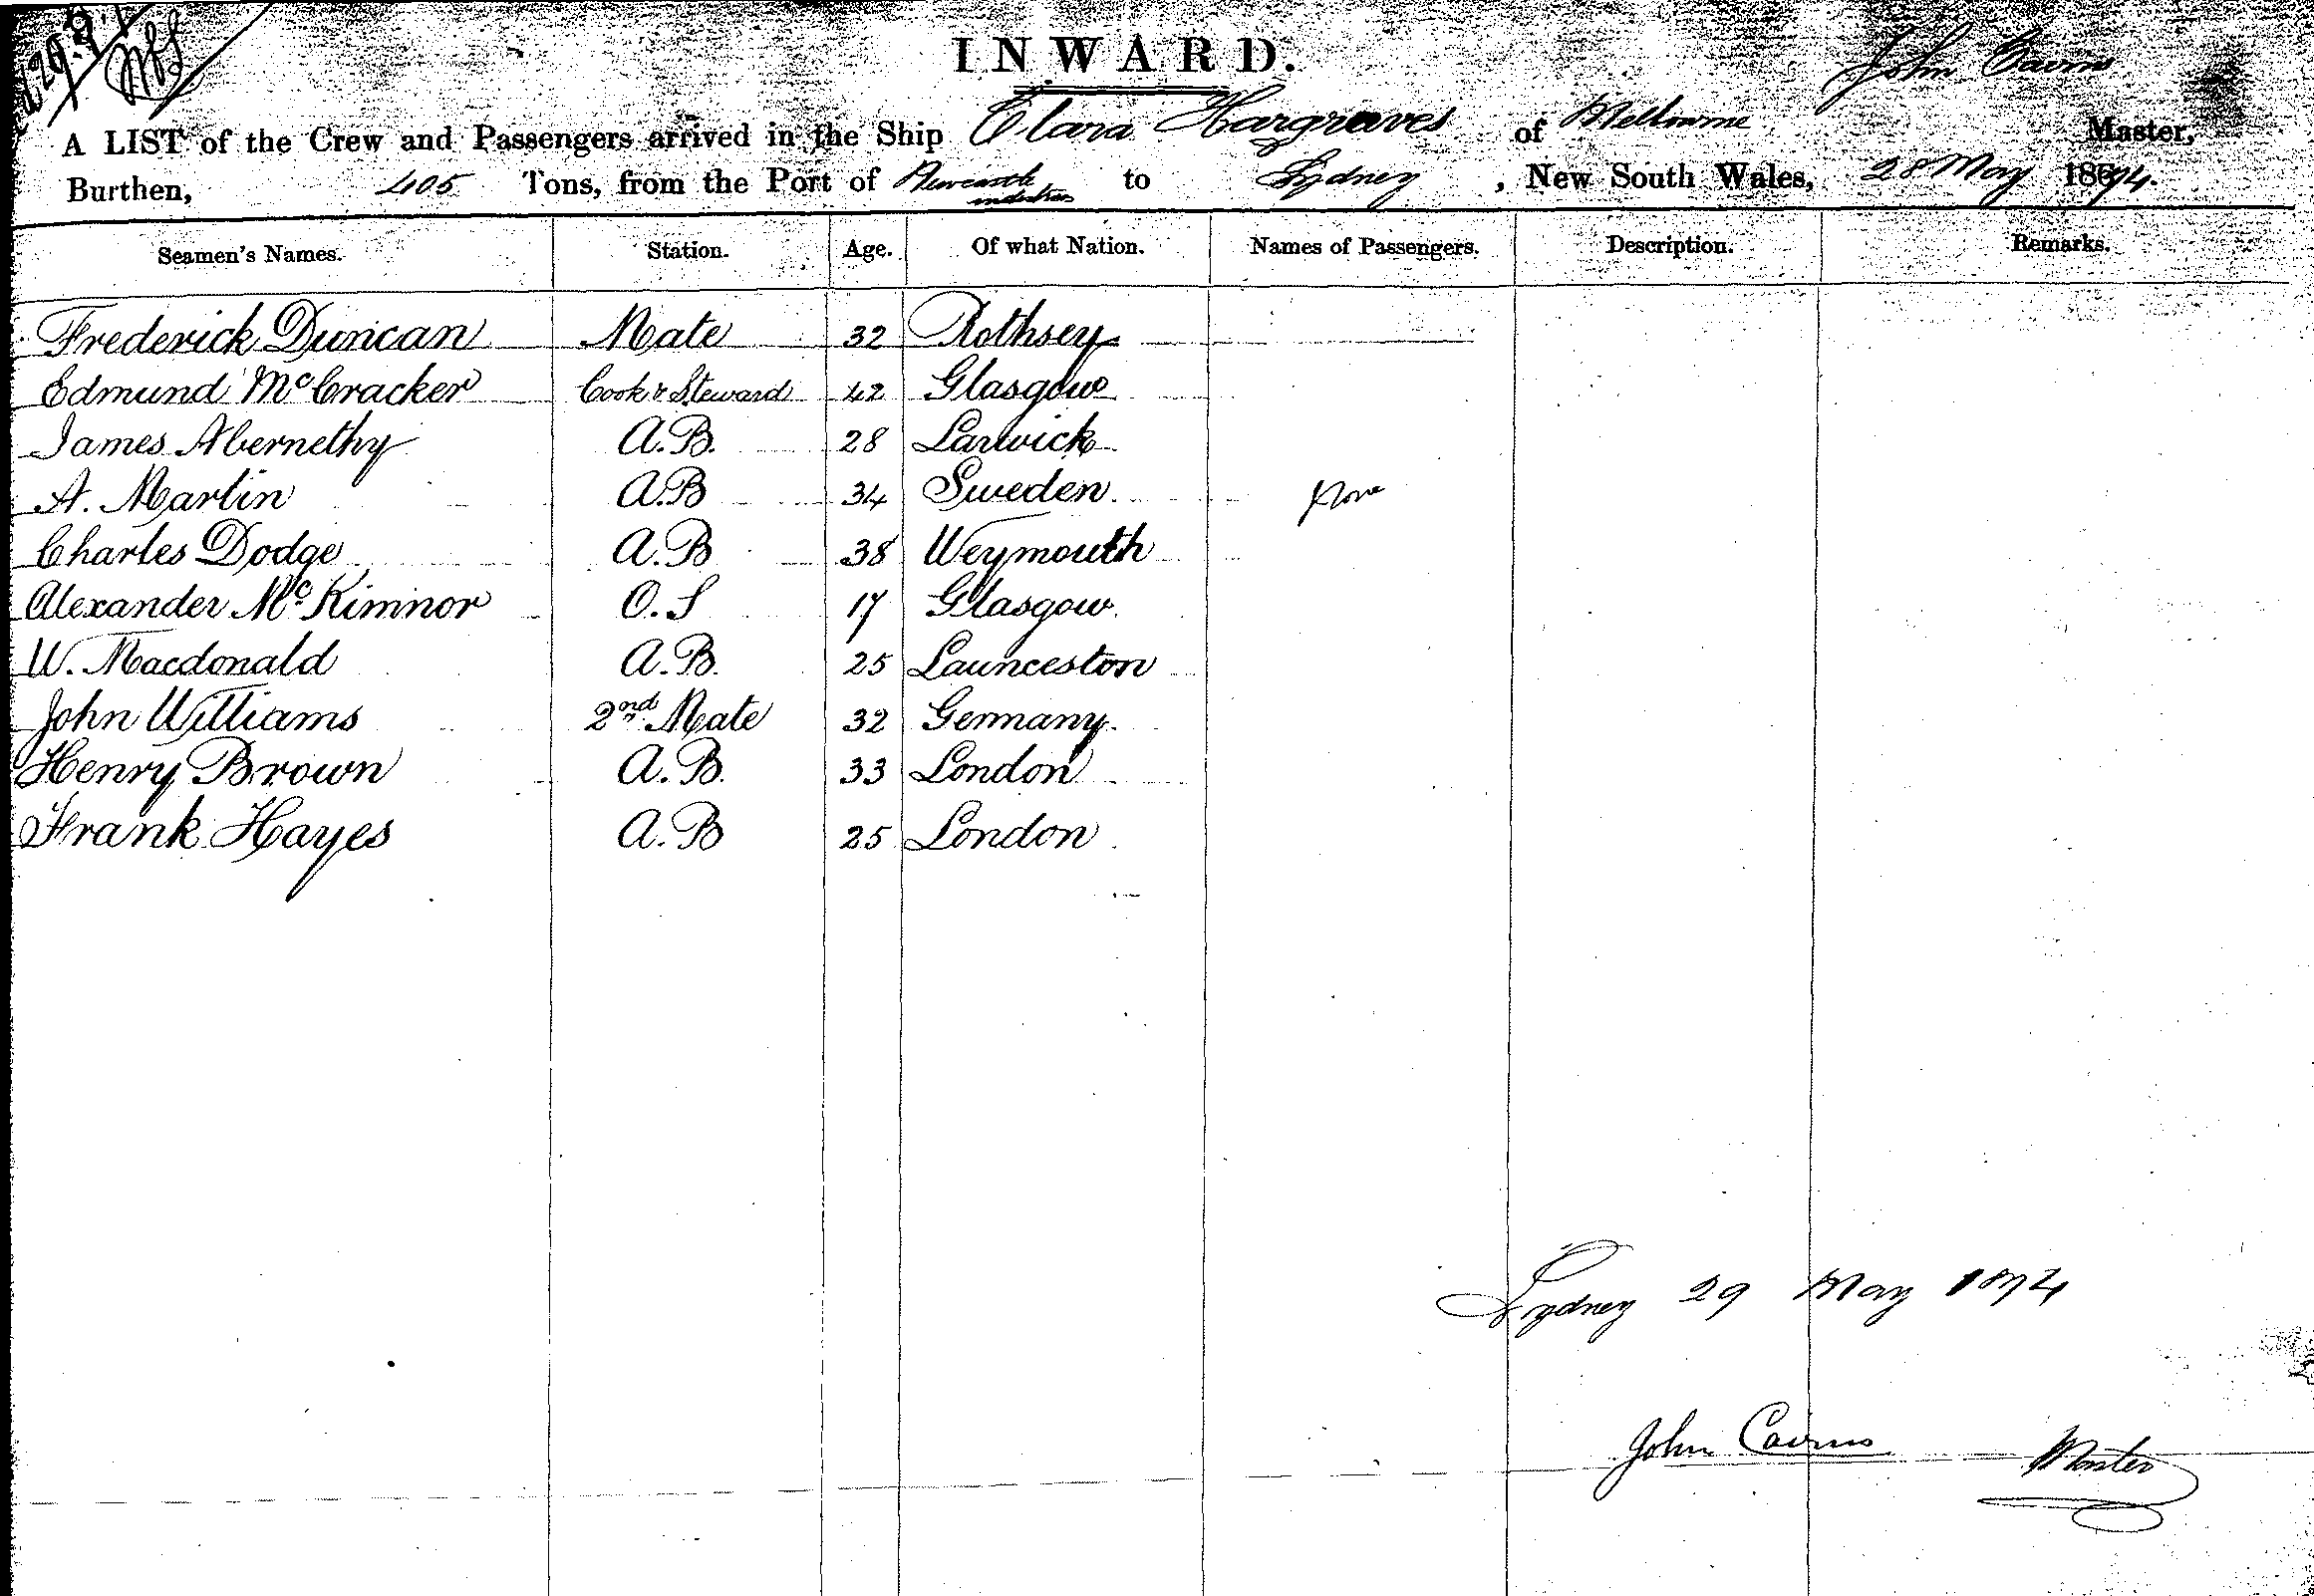 INWARD.
John Cairns
A LIST of the Crew and Passengers arrived in the Ship Clara Hargraves of Melbourne Master,
Burthen, 405 Tons, from the Port of Newcastle to Sydney, New South Wales, 28 May 1874.
Seamen's Names. Station. Age. Of what Nation. Names of Passengers. Description. Remarks.
Frederick Duncan Mate 32 Rothsey
Edmund McCracker Cook & Steward 42 Glasgow
James Abernethy A.B. 28 Larwick
A. Martin A.B 34 Sweden. None
Charles Dodge A.B 38 Weymouth
Alexander McKimnor O.S 17 Glasgow.
W. Macdonald A.B. 25 Launceston
John Williams 2nd Mate 32 Germany.
Henry Brown A.B. 33 London
Frank Hayes A.B 25 London
Sydney 29 May 1874
John Cairns Master